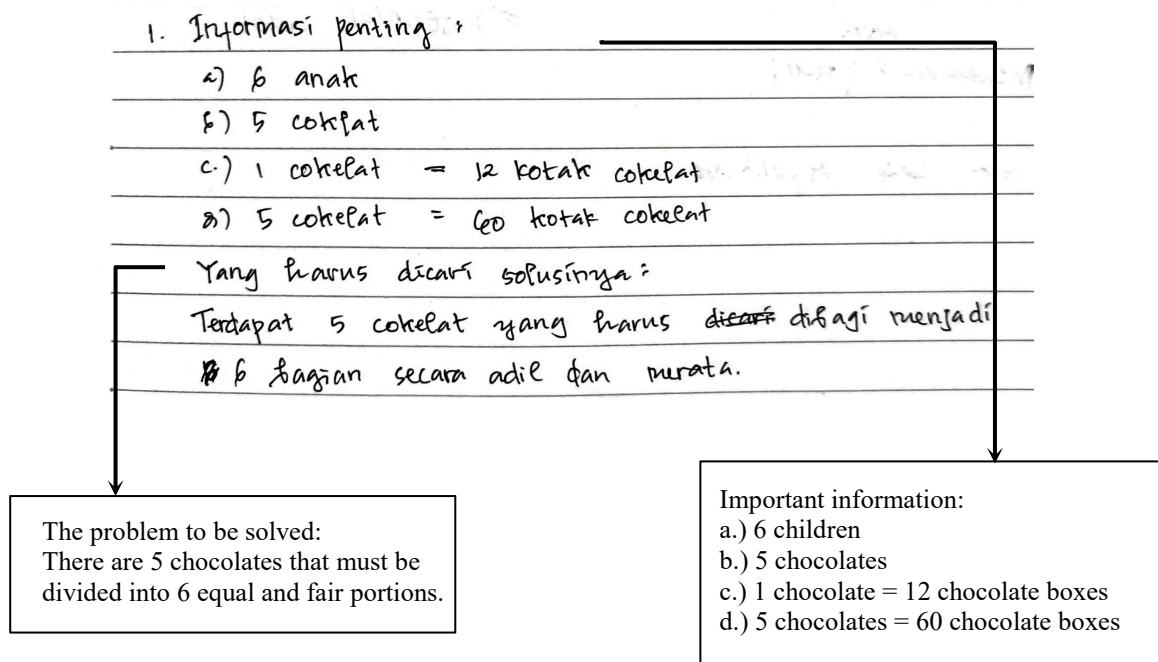 1. Informasi penting :
a) 6 anak
b) 5 coklat
c.) 1 cokelat = 12 kotak cokelat
d) 5 cokelat = 60 kotak cokelat
Yang harus dicari solusinya :
Terdapat 5 cokelat yang harus dicari dibagi menjadi
6 bagian secara adil dan merata.
The problem to be solved:
There are 5 chocolates that must be
divided into 6 equal and fair portions.
Important information:
a.) 6 children
b.) 5 chocolates
c.) 1 chocolate = 12 chocolate boxes
d.) 5 chocolates = 60 chocolate boxes